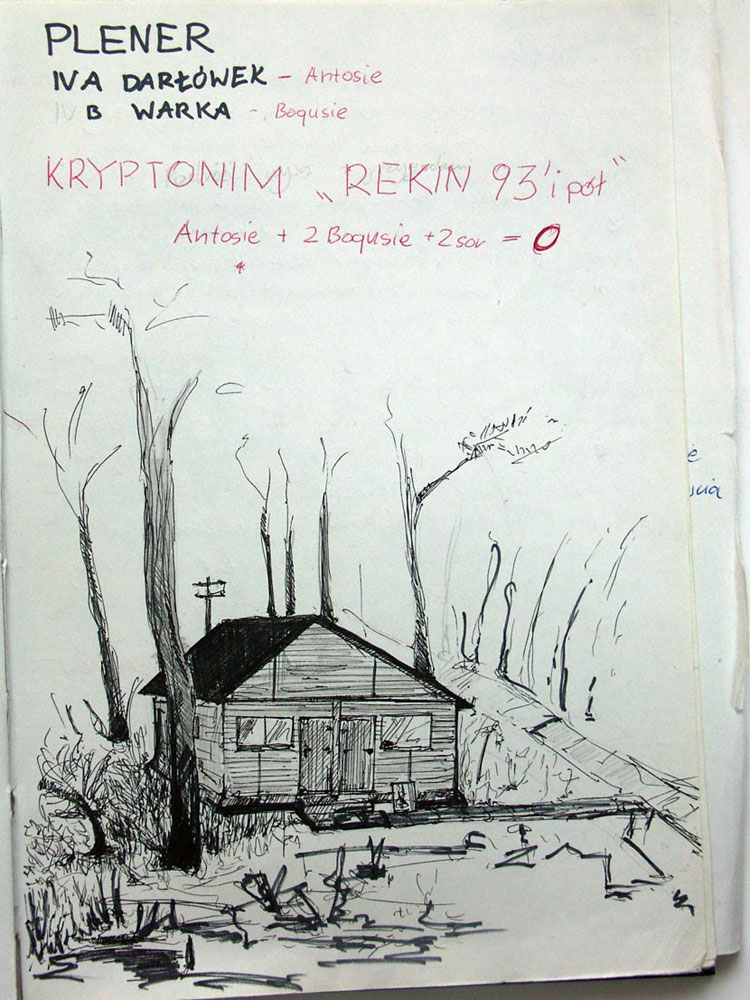 PLENER
IV A DARŁÓWEK - Antosie
IV B WARKA - Bogusie
KRYPTONIM „REKIN 93' i pół"
Antosie + 2 Bogusie + 2 sor = 0
*